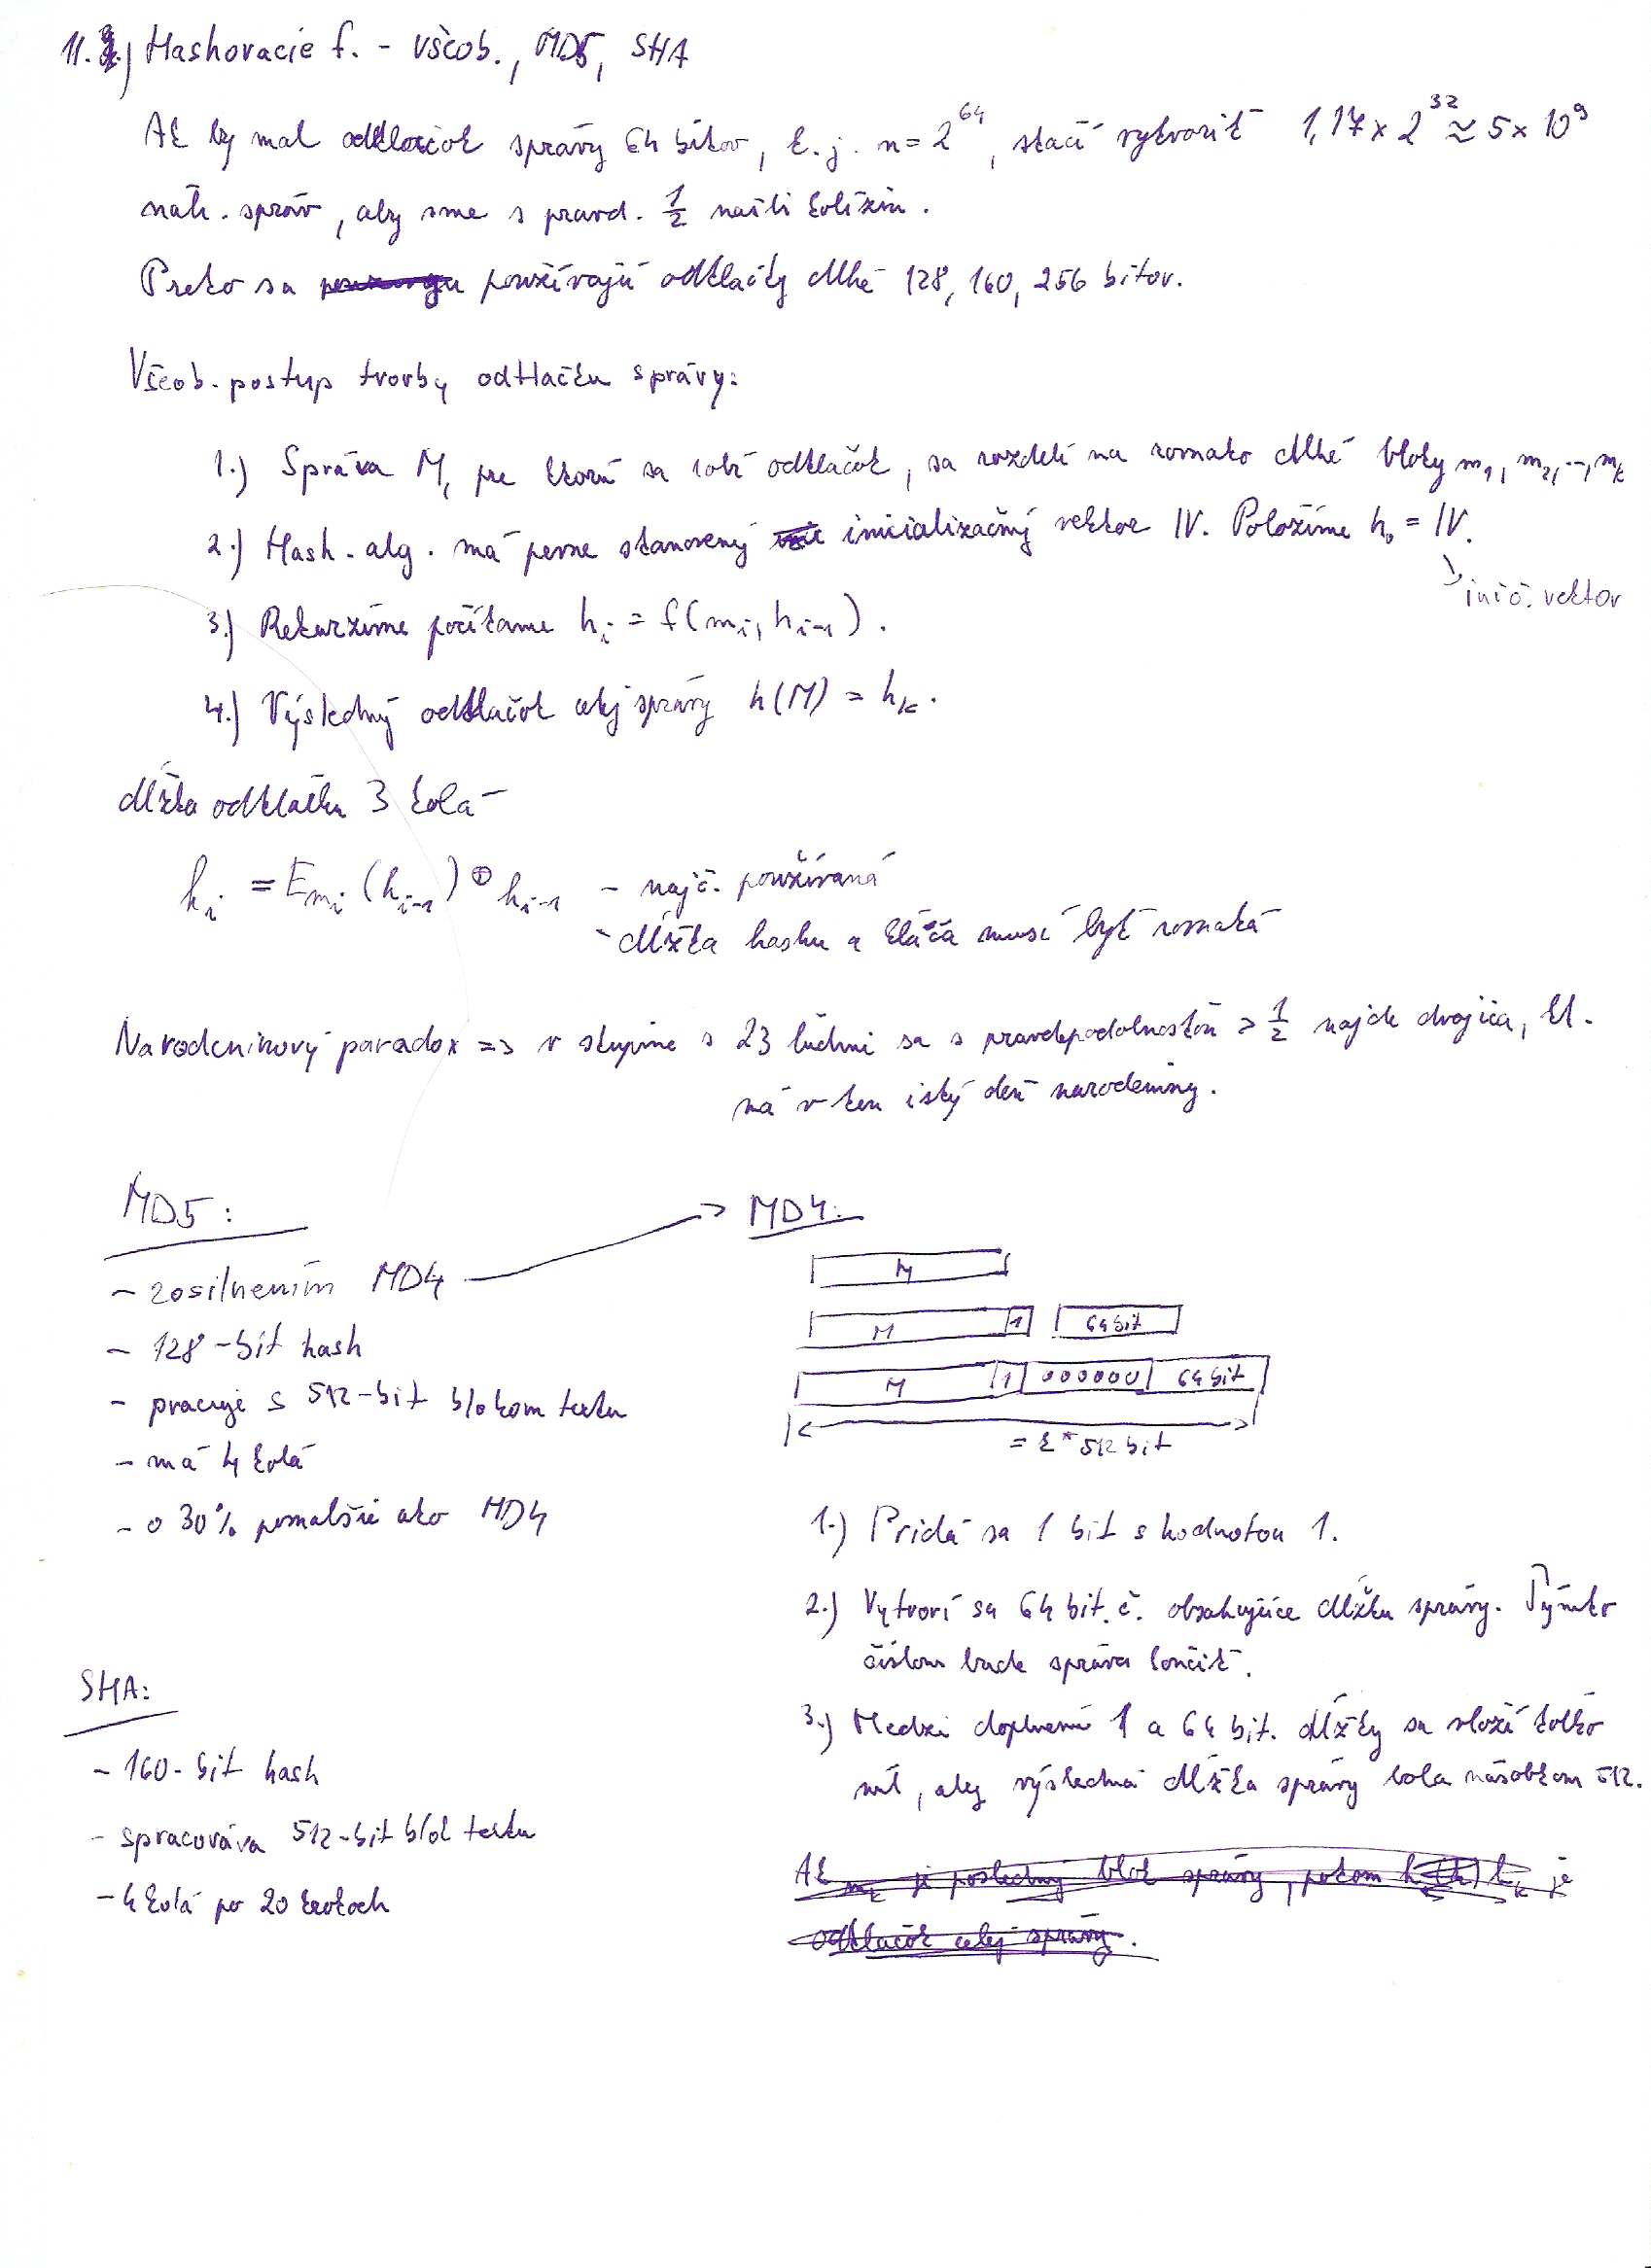 11.) Hashovacie f. - všeob., MD5, SHA
Ak by mal odtlačok správy 64 bitov, t.j. n = 2^64, stačí vytvoriť 1,17 x 2^32 ≈ 5 x 10^9
náh. správ, aby sme s pravd. 1/2 našli kolíziu.
Preto sa používajú odtlačky dlhé 128, 160, 256 bitov.
Všeob. postup tvorby odtlačku správy:
1.) Správa M, pre ktorú sa robí odtlačok, sa rozdelí na rovnako dlhé bloky m1, m2, ..., mk
2.) Hash. alg. má pevne stanovený inicializačný vektor IV. Položíme h0 = IV.
inic. vektor
3.) Rekurzívne počítame hi = f(mi, hi-1).
4.) Výsledný odtlačok celej správy h(M) = hk.
dĺžka odtlačku 3 kolá
hi = Emi(hi-1) ⊕ hi-1 - najč. používaná
- dĺžka hashu a kľúča musí byť rovnaká
Narodeninový paradox => v skupine s 23 ľuďmi sa s pravdepodobnosťou > 1/2 nájde dvojica, kt.
má v ten istý deň narodeniny.
MD5:
- zosilnením MD4
- 128-bit hash
- pracuje s 512-bit blokom textu
- má 4 kolá
- o 30% pomalšie ako MD4
MD4:
M
M 1 64 bit
M 1 000000 64 bit
= k * 512 bit
1.) Pridá sa 1 bit s hodnotou 1.
2.) Vytvorí sa 64 bit. č. obsahujúce dĺžku správy. Týmto
číslom bude správa končiť.
3.) Medzi doplnenú 1 a 64 bit. dĺžky sa vloží toľko
núl, aby výsledná dĺžka správy bola násobkom 512.
Ak mk je posledný blok správy, potom hk je
odtlačok celej správy.
SHA:
- 160-bit hash
- spracováva 512-bit blok textu
- 4 kolá po 20 krokoch